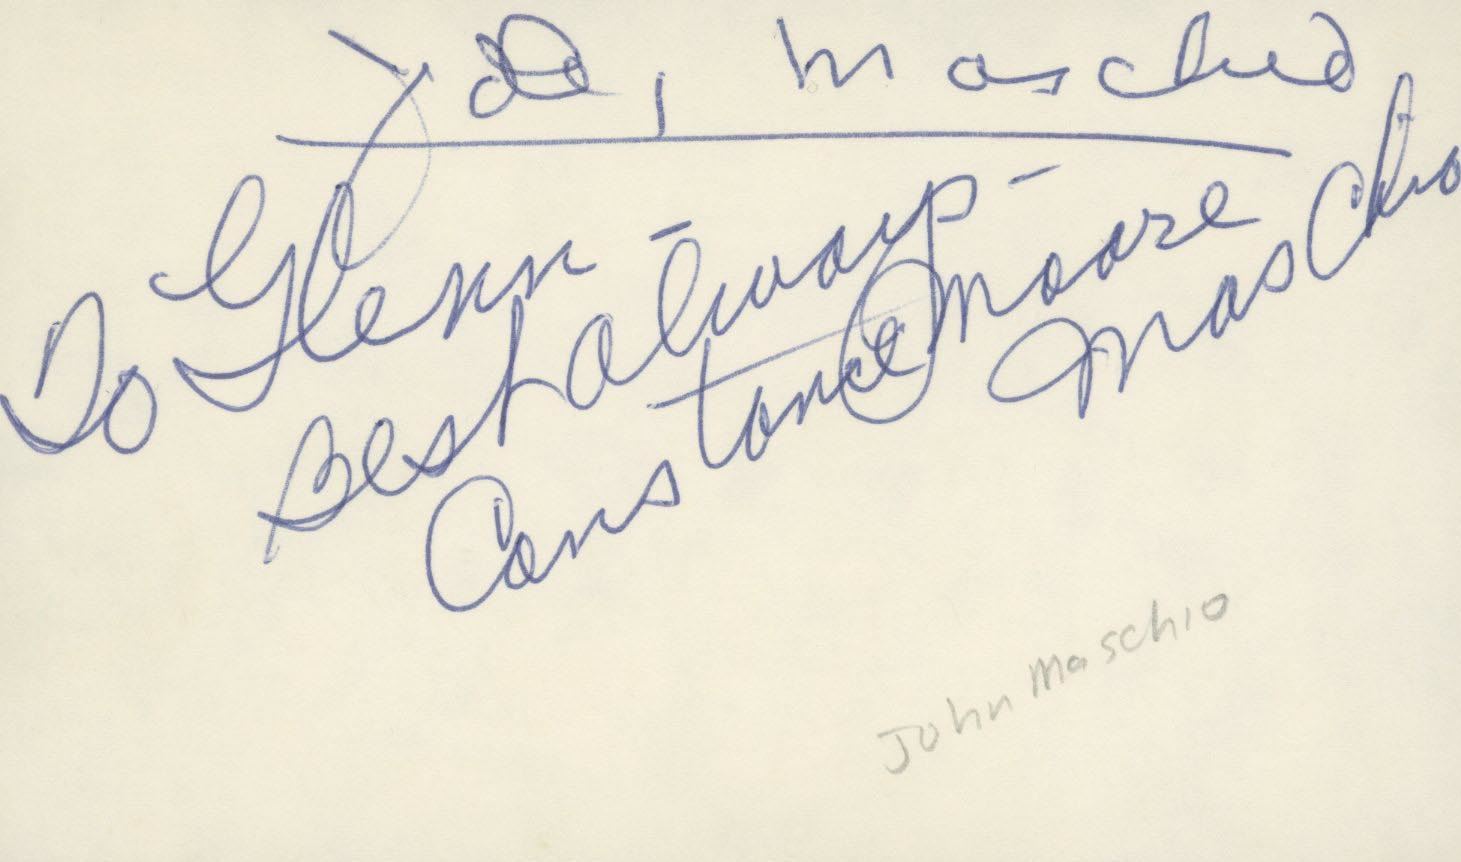 Maschio
To Glenn -
Best always -
Constance Moore
Maschio
John Maschio